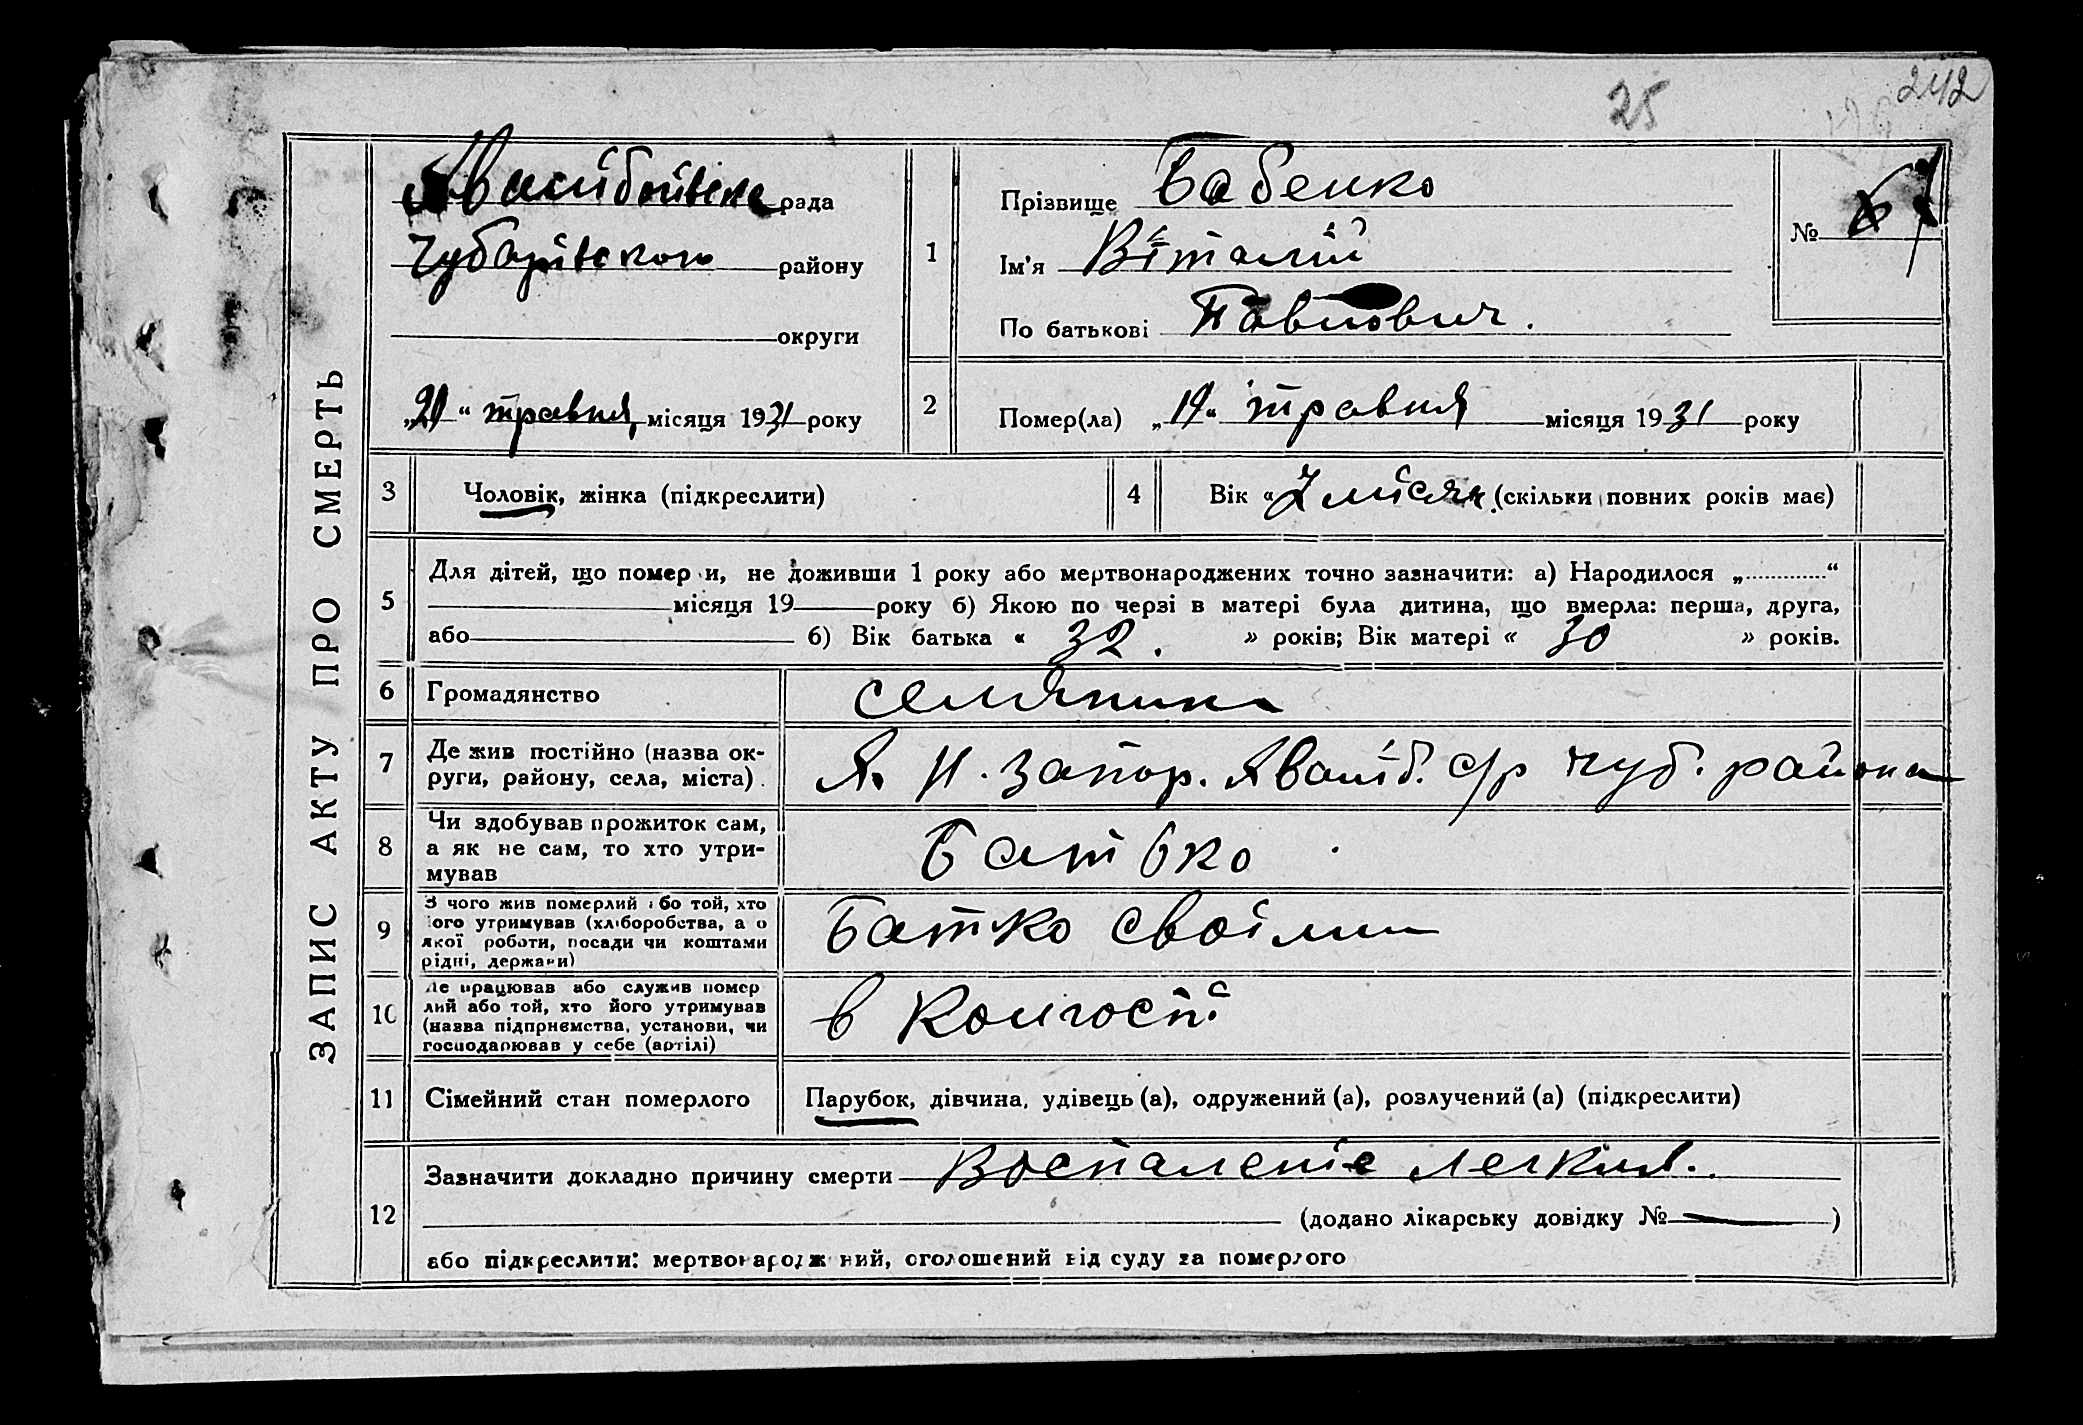 25
242
ЗАПИС АКТУ ПРО СМЕРТЬ
рада
Чубарівского району
округи
„20“ травня місяця 1931 року
1
Прізвище Бабенко
Ім'я Віталій
По батькові Павлович.
№ 7
2
Помер(ла) „19“ травня місяця 1931 року
3
Чоловік, жінка (підкреслити)
4
Вік « 7 місяц. (скільки повних років має)
5
Для дітей, що помер и, не доживши 1 року або мертвонароджених точно зазначити: а) Народилося „ “
місяця 19 року б) Якою по черзі в матері була дитина, що вмерла: перша, друга,
або б) Вік батька « 32. » років; Вік матері « 30 » років.
6
Громадянство
селянин
7
Де жив постійно (назва ок-
руги, району, села, міста).
Я. Н. Запор. Іваніб. с/р Чуб. района
8
Чи здобував прожиток сам,
а як не сам, то хто утри-
мував
Батько
9
З чого жив померлий або той, хто
його утримував (хліборобства, а о
якої роботи, посади чи коштами
рідні, держави)
Батко своїми
10
Де працював або служив помер
лий або той, хто його утримував
(назва підприємства, установи, чи
господарював у себе (артілі)
в Колгоспі
11
Сімейний стан померлого
Парубок, дівчина, удівець (а), одружений (а), розлучений (а) (підкреслити)
12
Зазначити докладно причину смерти Воспаленіє легких.
(додано лікарську довідку № )
або підкреслити: мертвонародж ний, оголошений від суду за померлого